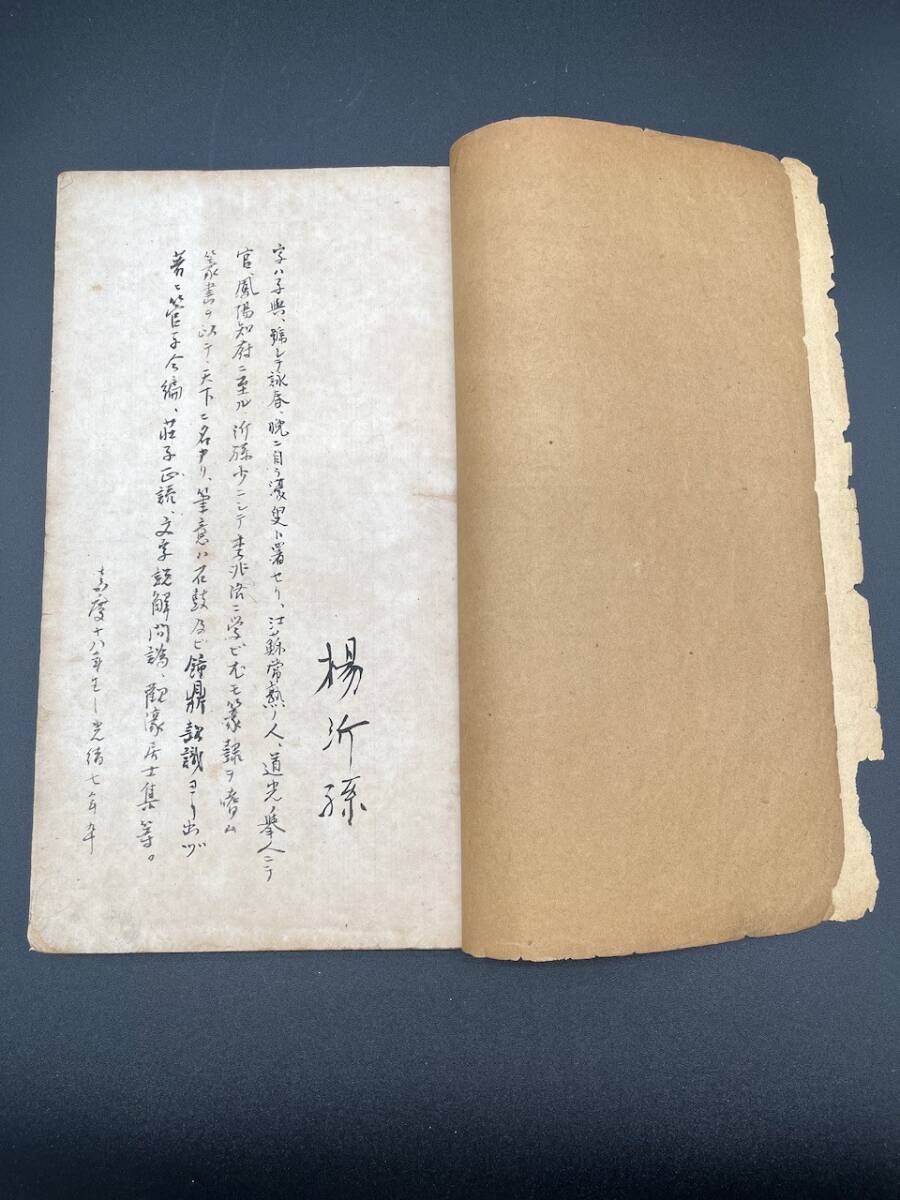 楊沂孫
字ハ子與、號シテ詠春、晩ニ自ラ濠叟ト署セリ、江蘇常熟ノ人、道光ノ擧人ニテ
官、鳳陽知府ニ至ル沂孫少ニシテ李兆洛ニ学ビ尤モ篆隸ヲ嗜ム
篆書ヲ以テ、天下ニ名アリ、筆意ハ石鼓及ビ鐘鼎款識ヨリ出ヅ
著ニ管子今編、莊子正讀、文字説解問譌、觀濠居士集等。
嘉慶十八年生ー光緒七年卒